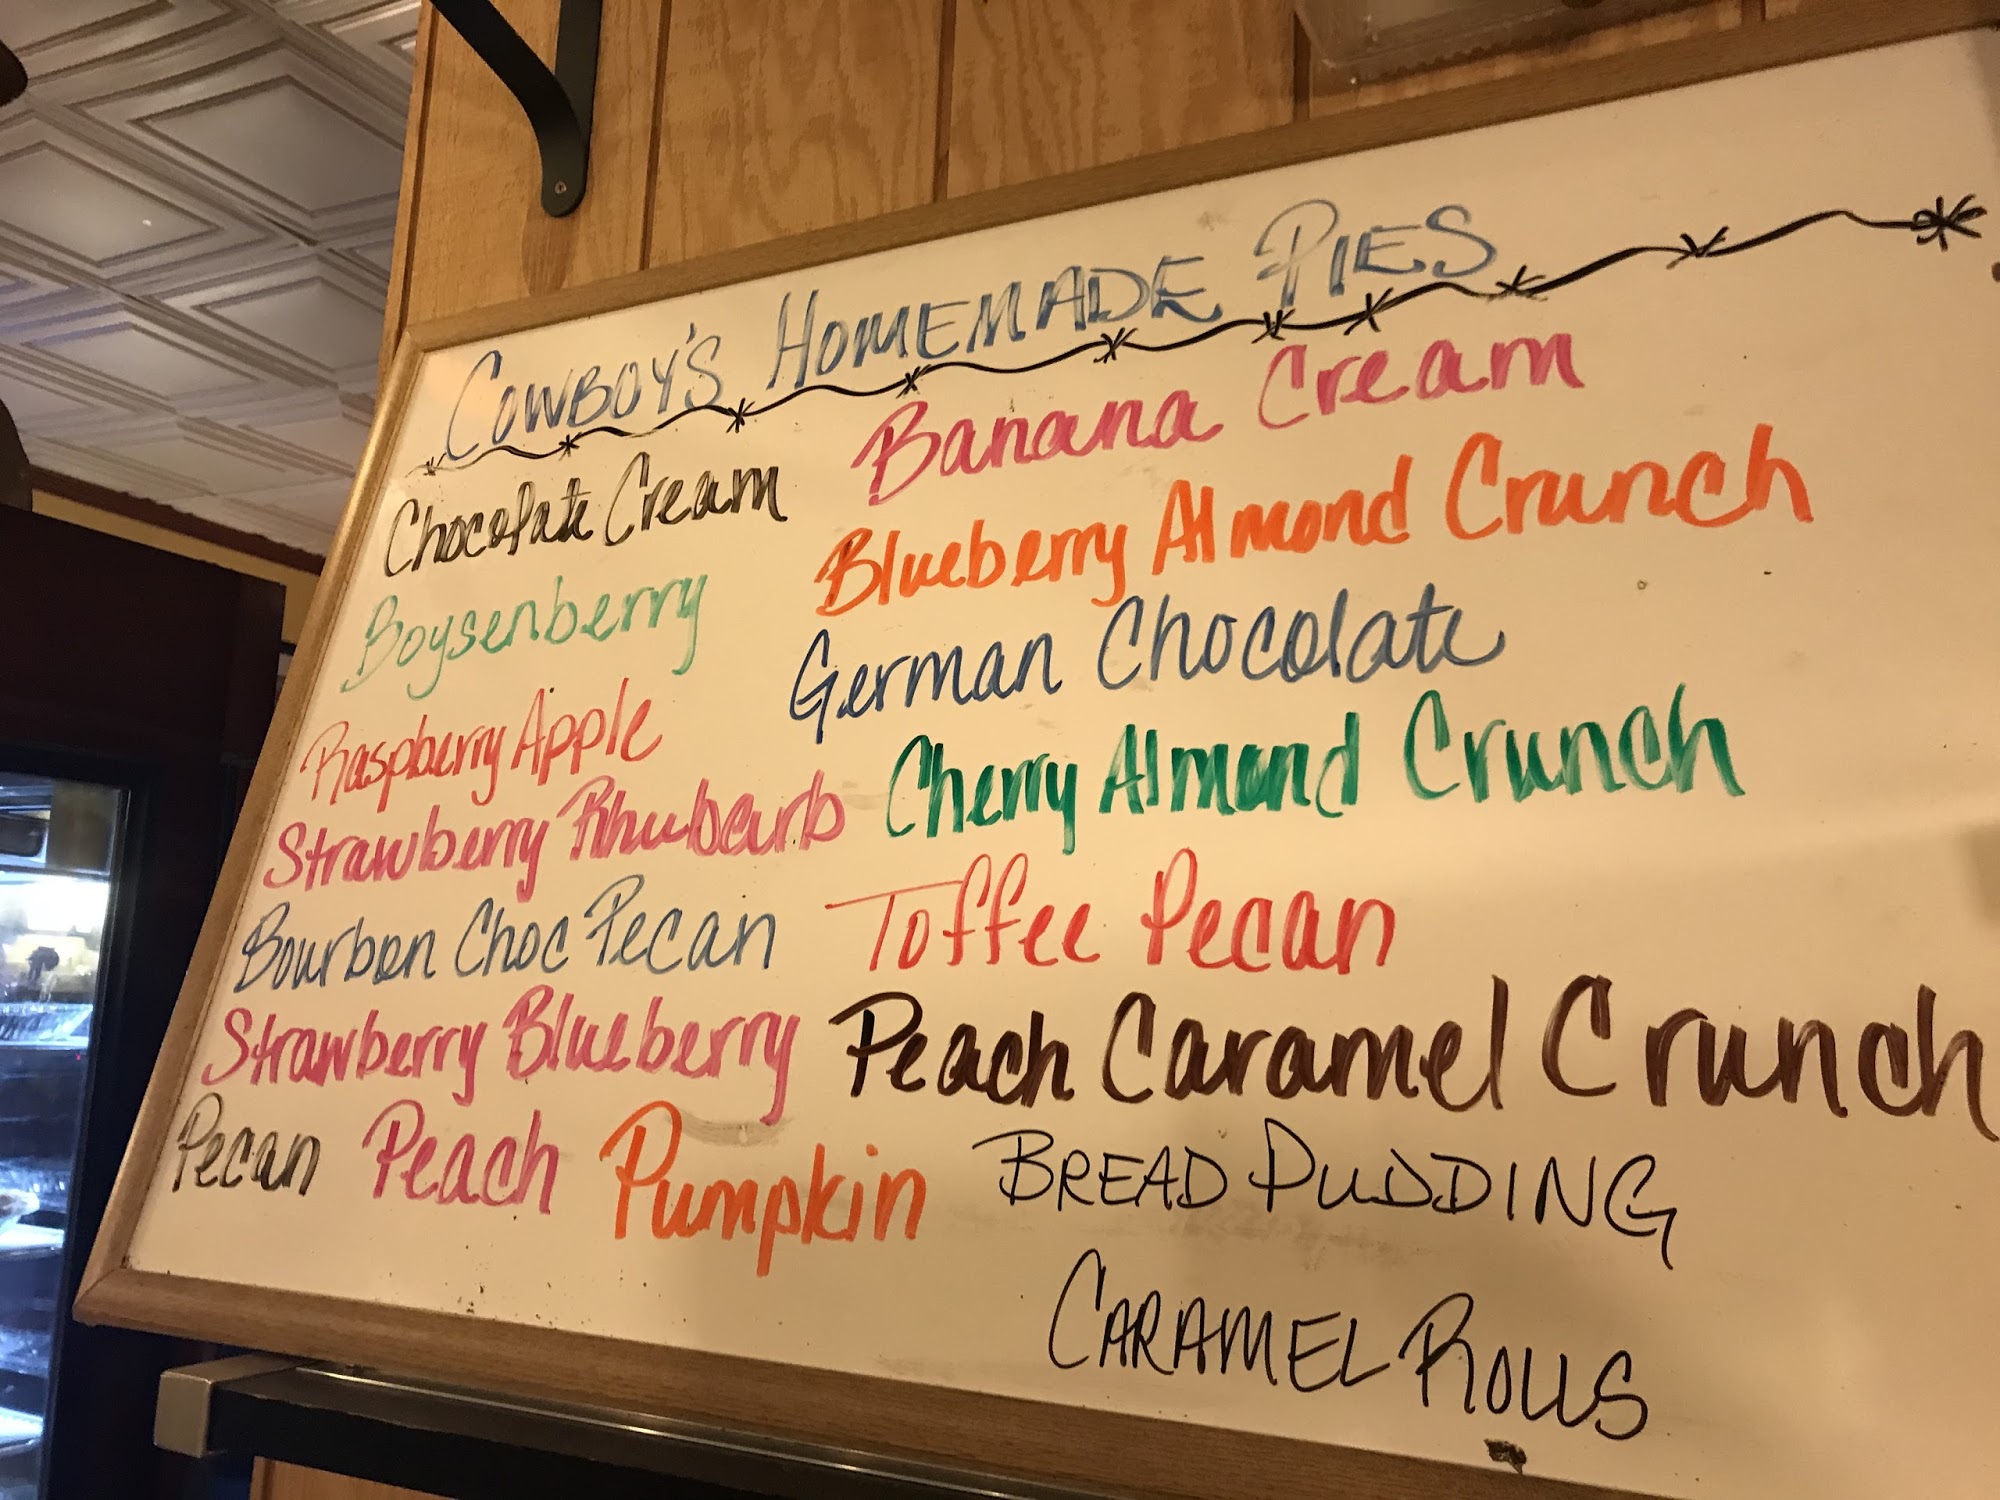 COWBOY'S HOMEMADE PIES
Chocolate Cream
Boysenberry
Raspberry Apple
Strawberry Rhubarb
Bourbon Choc Pecan
Strawberry Blueberry
Pecan Peach Pumpkin
Banana Cream
Blueberry Almond Crunch
German Chocolate
Cherry Almond Crunch
Toffee Pecan
Peach Caramel Crunch
BREAD PUDDING
CARAMEL ROLLS